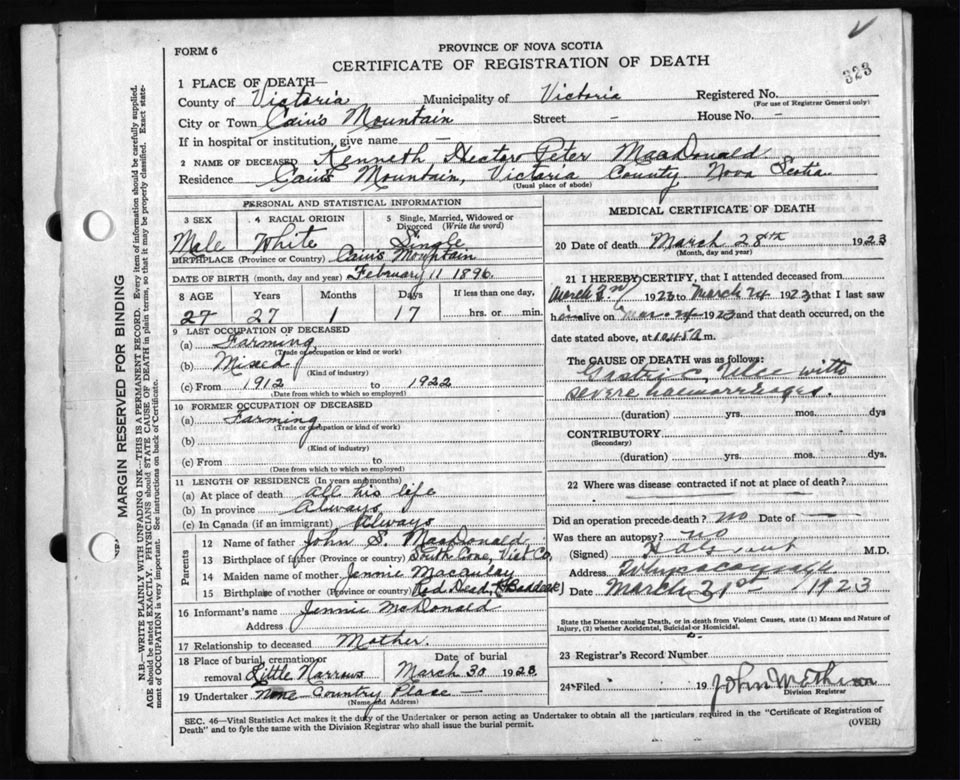 FORM 6
PROVINCE OF NOVA SCOTIA
CERTIFICATE OF REGISTRATION OF DEATH
323
1 PLACE OF DEATH—
County of Victoria Municipality of Victoria Registered No.
(For use of Registrar General only)
City or Town Cains Mountain Street - House No. -
If in hospital or institution, give name —
2 NAME OF DECEASED Kenneth Hector Peter MacDonald
Residence Cains Mountain, Victoria County Nova Scotia
(Usual place of abode)
PERSONAL AND STATISTICAL INFORMATION
3 SEX 4 RACIAL ORIGIN 5 Single, Married, Widowed or Divorced (Write the word)
Male White Single
BIRTHPLACE (Province or Country) Cains Mountain
DATE OF BIRTH (month, day and year) February 11 1896
8 AGE Years Months Days If less than one day,
27 27 1 17 hrs. or min.
9 LAST OCCUPATION OF DECEASED
(a) Farming
(Trade or occupation or kind or work)
(b) Mixed
(Kind of industry)
(c) From 1912 to 1922
(Date from which to which so employed)
10 FORMER OCCUPATION OF DECEASED
(a) Farming
(Trade or occupation or kind of work)
(b)
(Kind of industry)
(c) From to
(Date from which to which so employed)
11 LENGTH OF RESIDENCE (In years and months)
(a) At place of death all his life
(b) In province Always
(c) In Canada (if an immigrant) Always
Parents
12 Name of father John S. MacDonald
13 Birthplace of father (Province or country) South Cove, Vict Co,
14 Maiden name of mother Jennie Macaulay
15 Birthplace of mother (Province or country) (Baddeck)
16 Informant's name Jennie McDonald
Address
17 Relationship to deceased Mother.
18 Place of burial, cremation or removal Little Narrows Date of burial March 30 1923
19 Undertaker None - Country Place -
(Name and Address)
MEDICAL CERTIFICATE OF DEATH
20 Date of death March 28th 1923
(Month, day and year)
21 I HEREBY CERTIFY, that I attended deceased from
March 1923 to March 24 1923 that I last saw
him alive on Mar. 24 1923 and that death occurred, on
date stated above, at m.
The CAUSE OF DEATH was as follows:
Gastric Ulcer with
severe haemorrhages.
(duration) yrs. mos. dys
CONTRIBUTORY
(Secondary)
(duration) yrs. mos. dys.
22 Where was disease contracted if not at place of death?
Did an operation precede death? no Date of —
Was there an autopsy? no
(Signed) M.D.
Address Whycocomagh
Date March 31st 1923
State the Disease causing Death, or in Death from Violent Causes, state (1) Means and Nature of Injury, (2) whether Accidental, Suicidal or Homicidal.
23 Registrar's Record Number
24 Filed 19 John
Division Registrar
SEC. 46—Vital Statistics Act makes it the duty of the Undertaker or person acting as Undertaker to obtain all the particulars required in the "Certificate of Registration of
Death" and to fyle the same with the Division Registrar who shall issue the burial permit.
(OVER)
MARGIN RESERVED FOR BINDING
N.B.—WRITE PLAINLY WITH UNFADING INK—THIS IS A PERMANENT RECORD. Every item of information should be carefully supplied.
AGE should be stated EXACTLY. PHYSICIANS should STATE CAUSE OF DEATH in plain terms, so that it may be properly classified. Exact statement of OCCUPATION is very important. See instructions on back of Certificate.